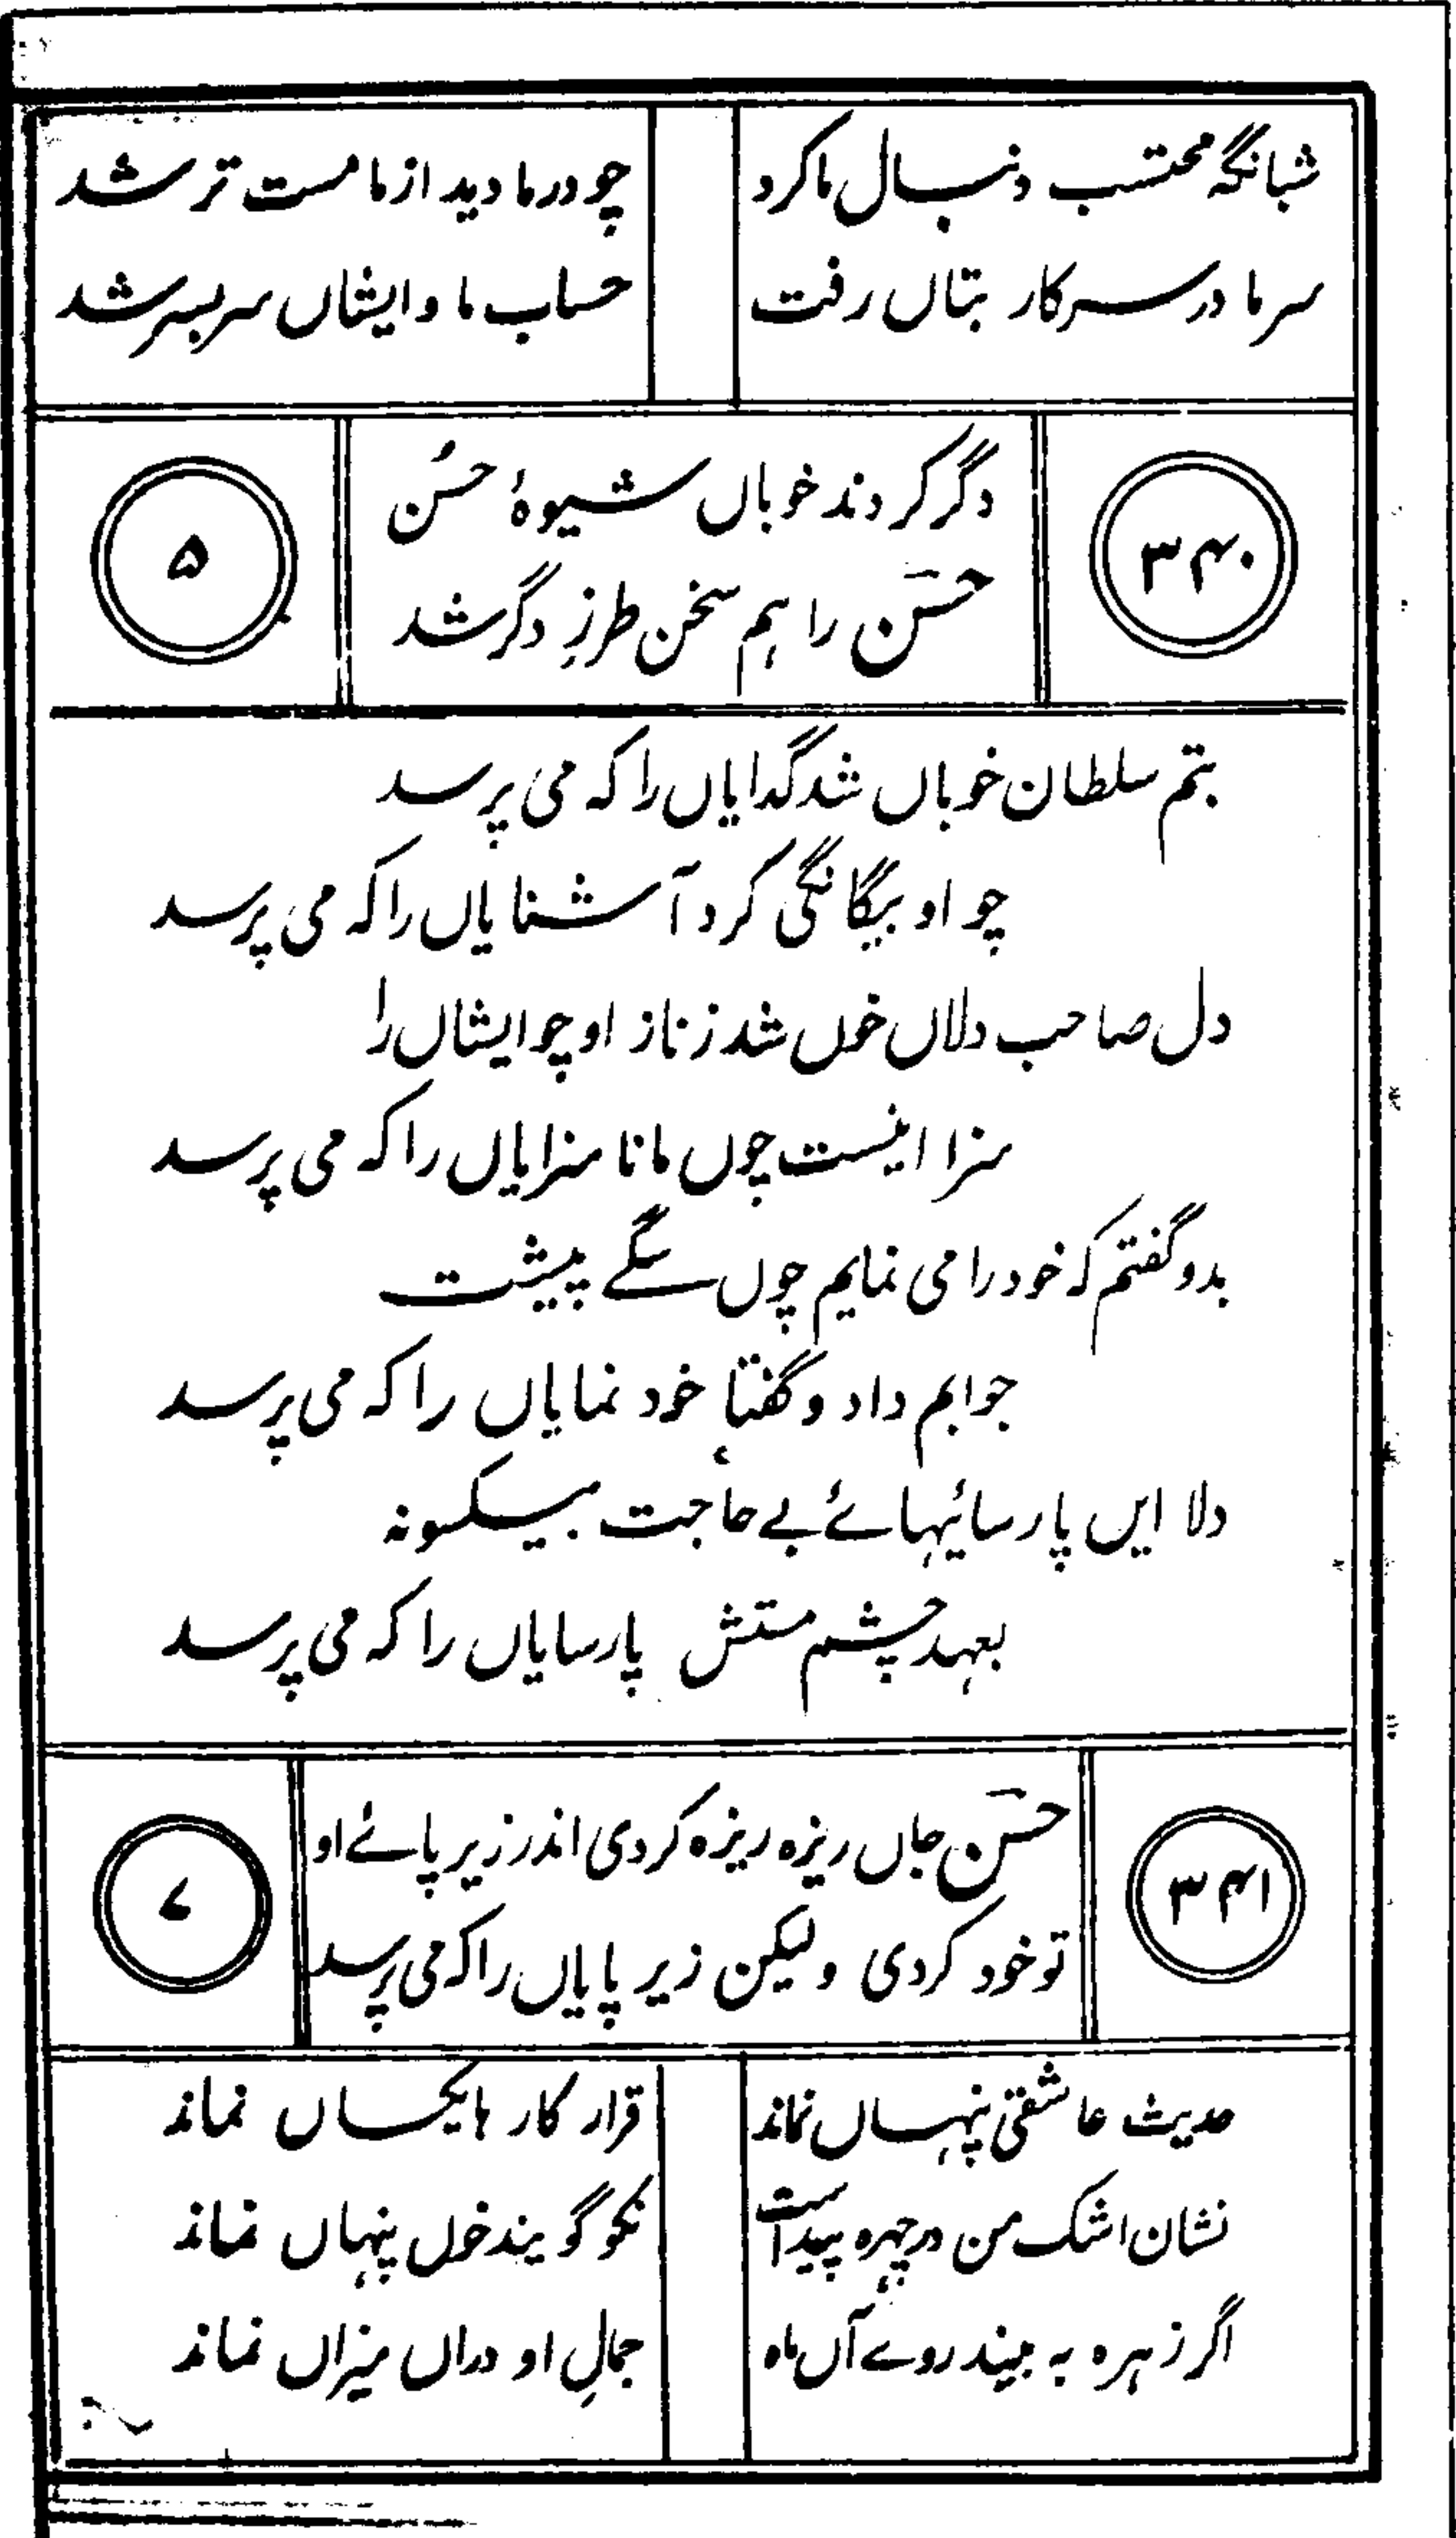 شبانگہ محتسب دنبال ما کرد چو در ما دید از ما مست تر شد
سر ما در سر کار بتاں رفت حساب ما و ایشاں سر بسر شد
۳۴۰ دگر کردند خوباں شیوۂ حُسن ۵
حسنؔ را ہم سخن طرزِ دگر شد
بتم سلطان خوباں شد گدایاں را کہ می پرسد
چو او بیگانگی کرد آشنایاں را کہ می پرسد
دل صاحب دلاں خوں شد ز ناز او چو ایشاں را
سزا اینست چوں ما نا سزایاں را کہ می پرسد
بدو گفتم کہ خود را می نمایم چوں سگے پیشت
جوابم داد و گفتا خود نمایاں را کہ می پرسد
دلا ایں پارسائیہائے بے حاجت بیکسو نہ
بعہد چشم مستش پارسایاں را کہ می پرسد
۳۴۱ حسنؔ جاں ریزہ ریزہ کردی اندر زیر پائے او ۷
تو خود کردی ولیکن زیر پایاں را کہ می پرسد
حدیث عاشقی پنہاں نماند قرار کار ہا یکساں نماند
نشان اشک من در چہرہ پیداست نکو گویند خوں پنہاں نماند
اگر زہرہ بہ بیند روے آں ماہ جمالِ او دراں میزاں نماند